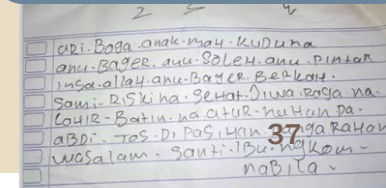 ari. Boga. anak. mah. kuduna
anu. Bager. anu. Soleh. anu. pintar
insa. allah. anu. Bager. Berkah.
Sami. Riski na. Sehat. Jiwa. Raga. na.
Lohir. Batin. na atur. nuhun pa.
aBDi. Tos. Di Pasihan 37 Raga Rahon
Wasalam. Santi. IBu. 
naBila.